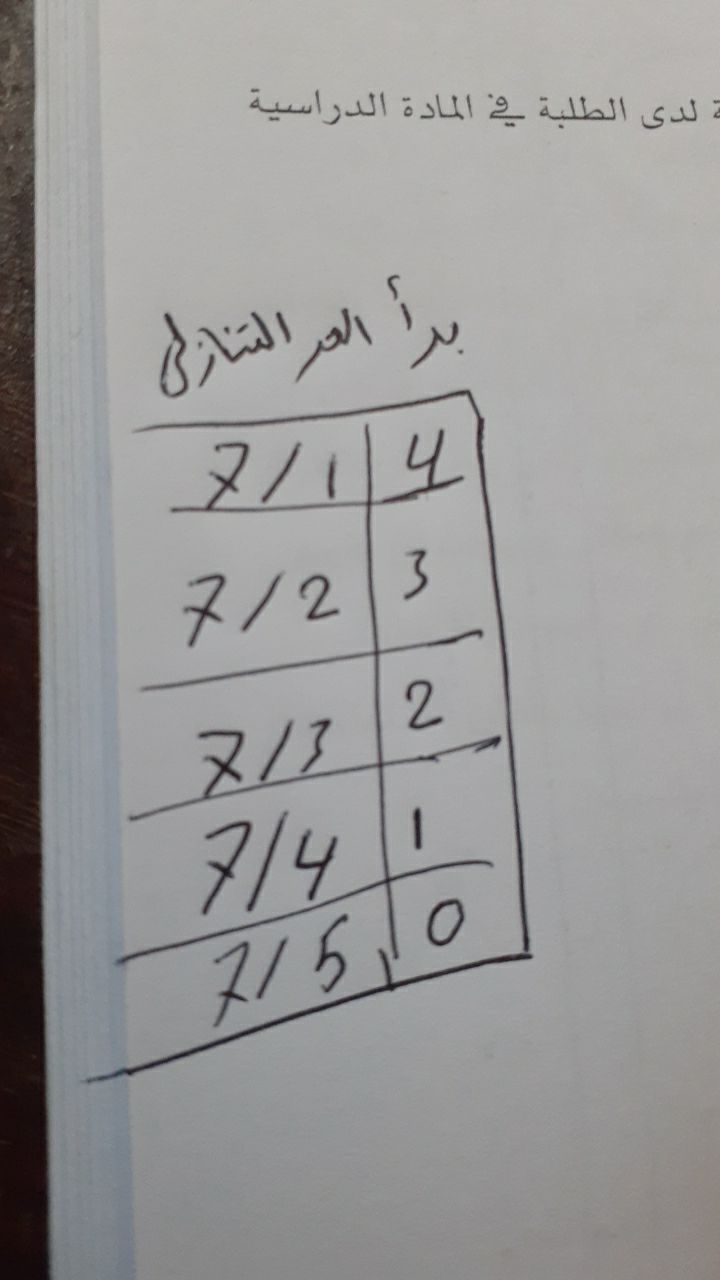 ة لدى الطلبة في المادة الدراسية
بدأ العد التنازلي
7/1 4
7/2 3
7/3 2
7/4 1
7/5 0